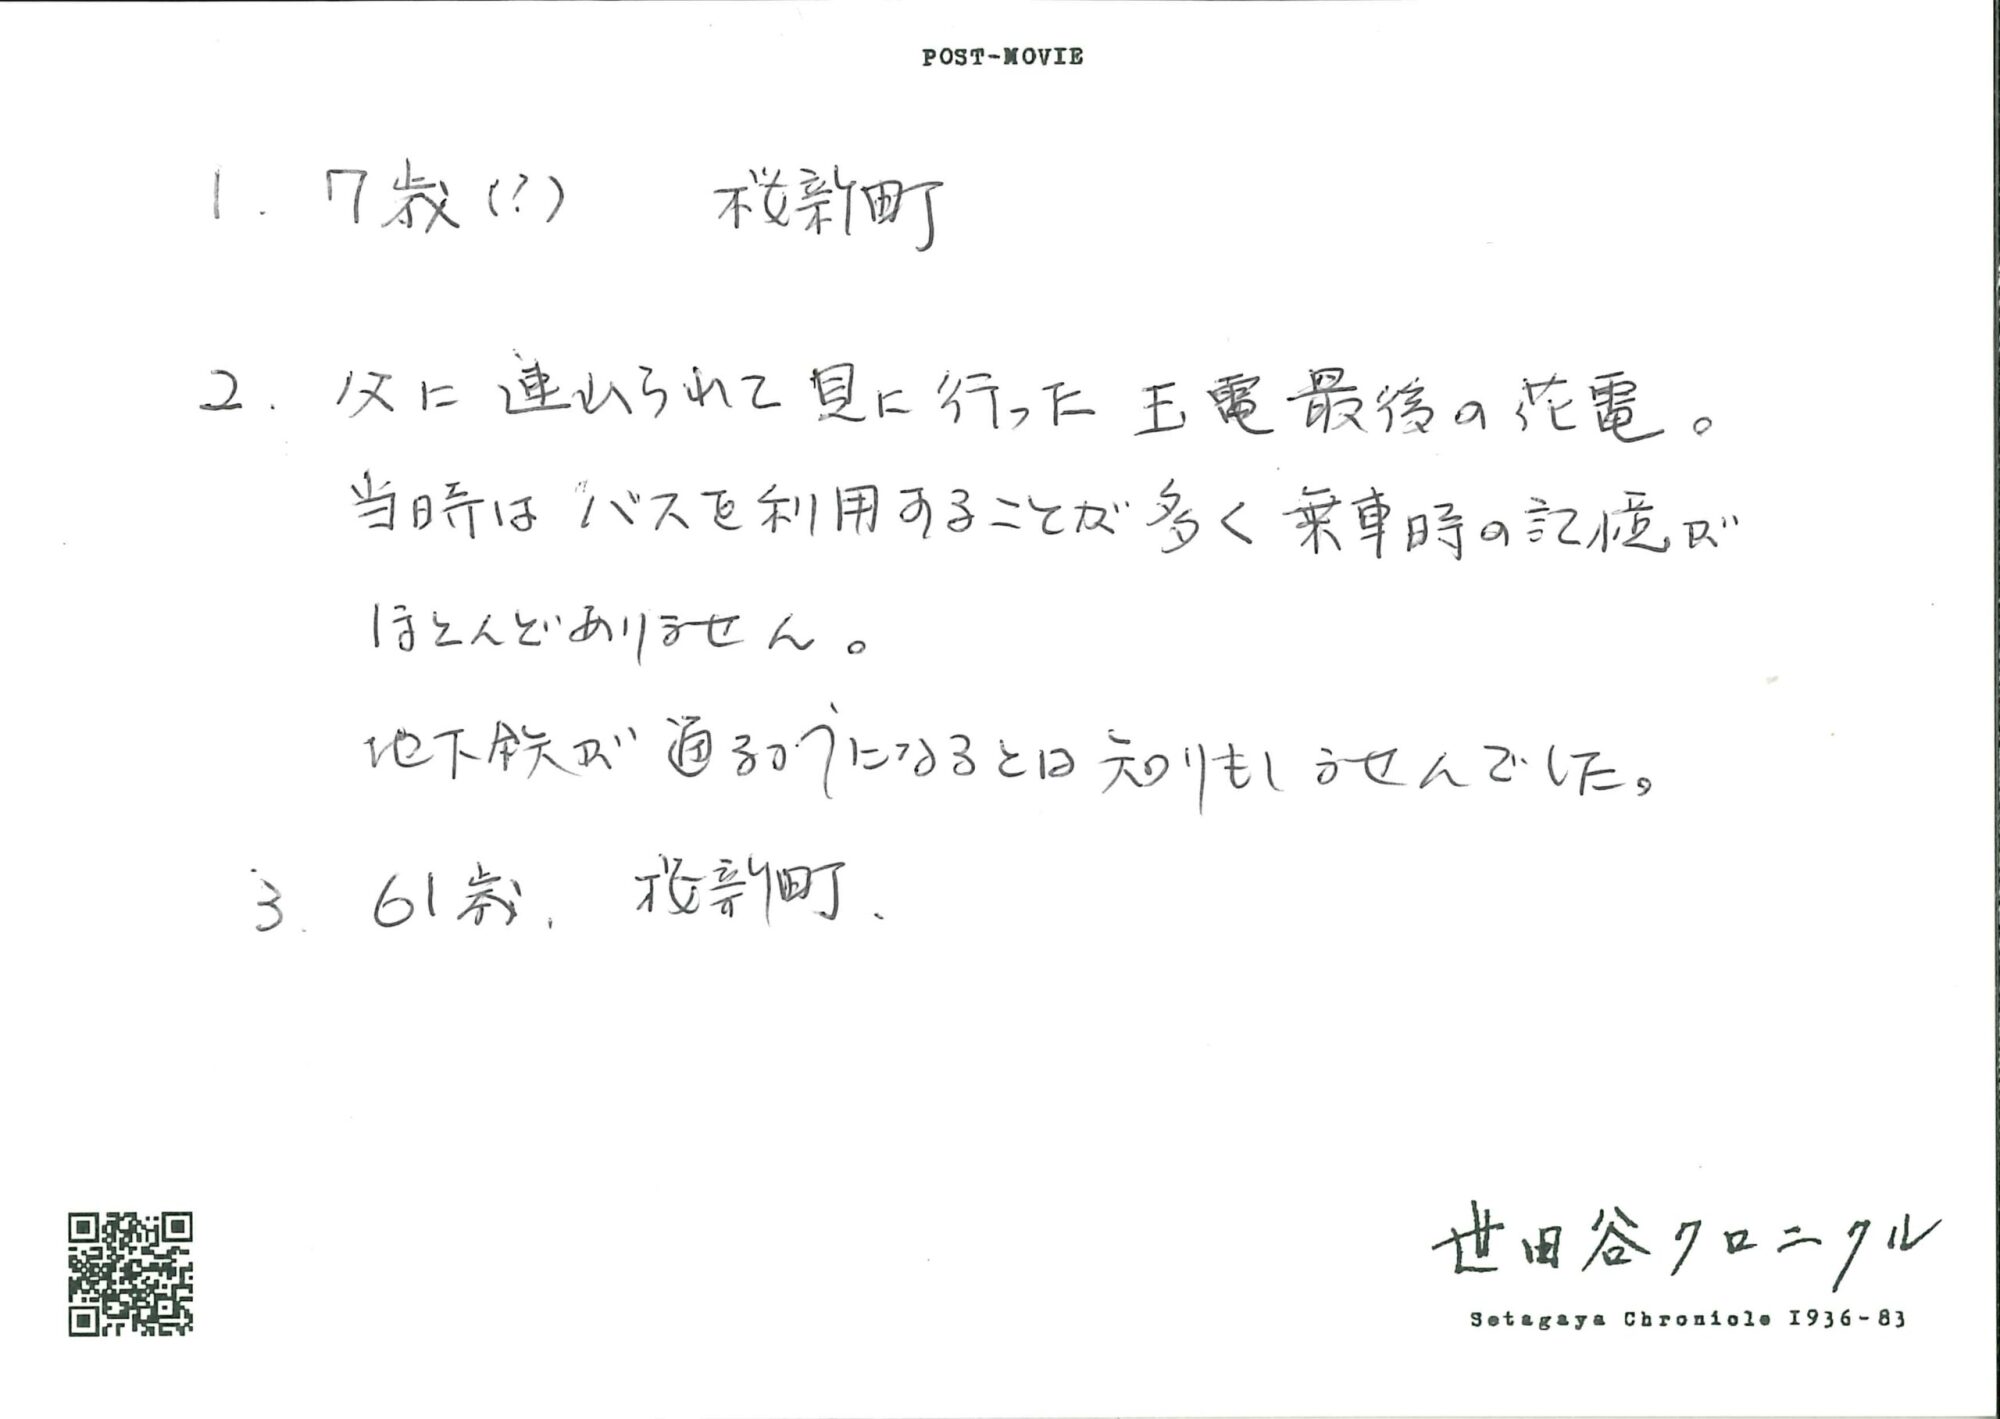 POST-MOVIE
1. 7歳(?) 桜新町
2. 父に連れられて見に行った玉電最後の花電。
当時はバスを利用することが多く乗車時の記憶が
ほとんどありません。
地下鉄が通るようになるとは知りもしませんでした。
3. 61歳. 桜新町.
世田谷クロニクル
Setagaya Chronicle 1936-83